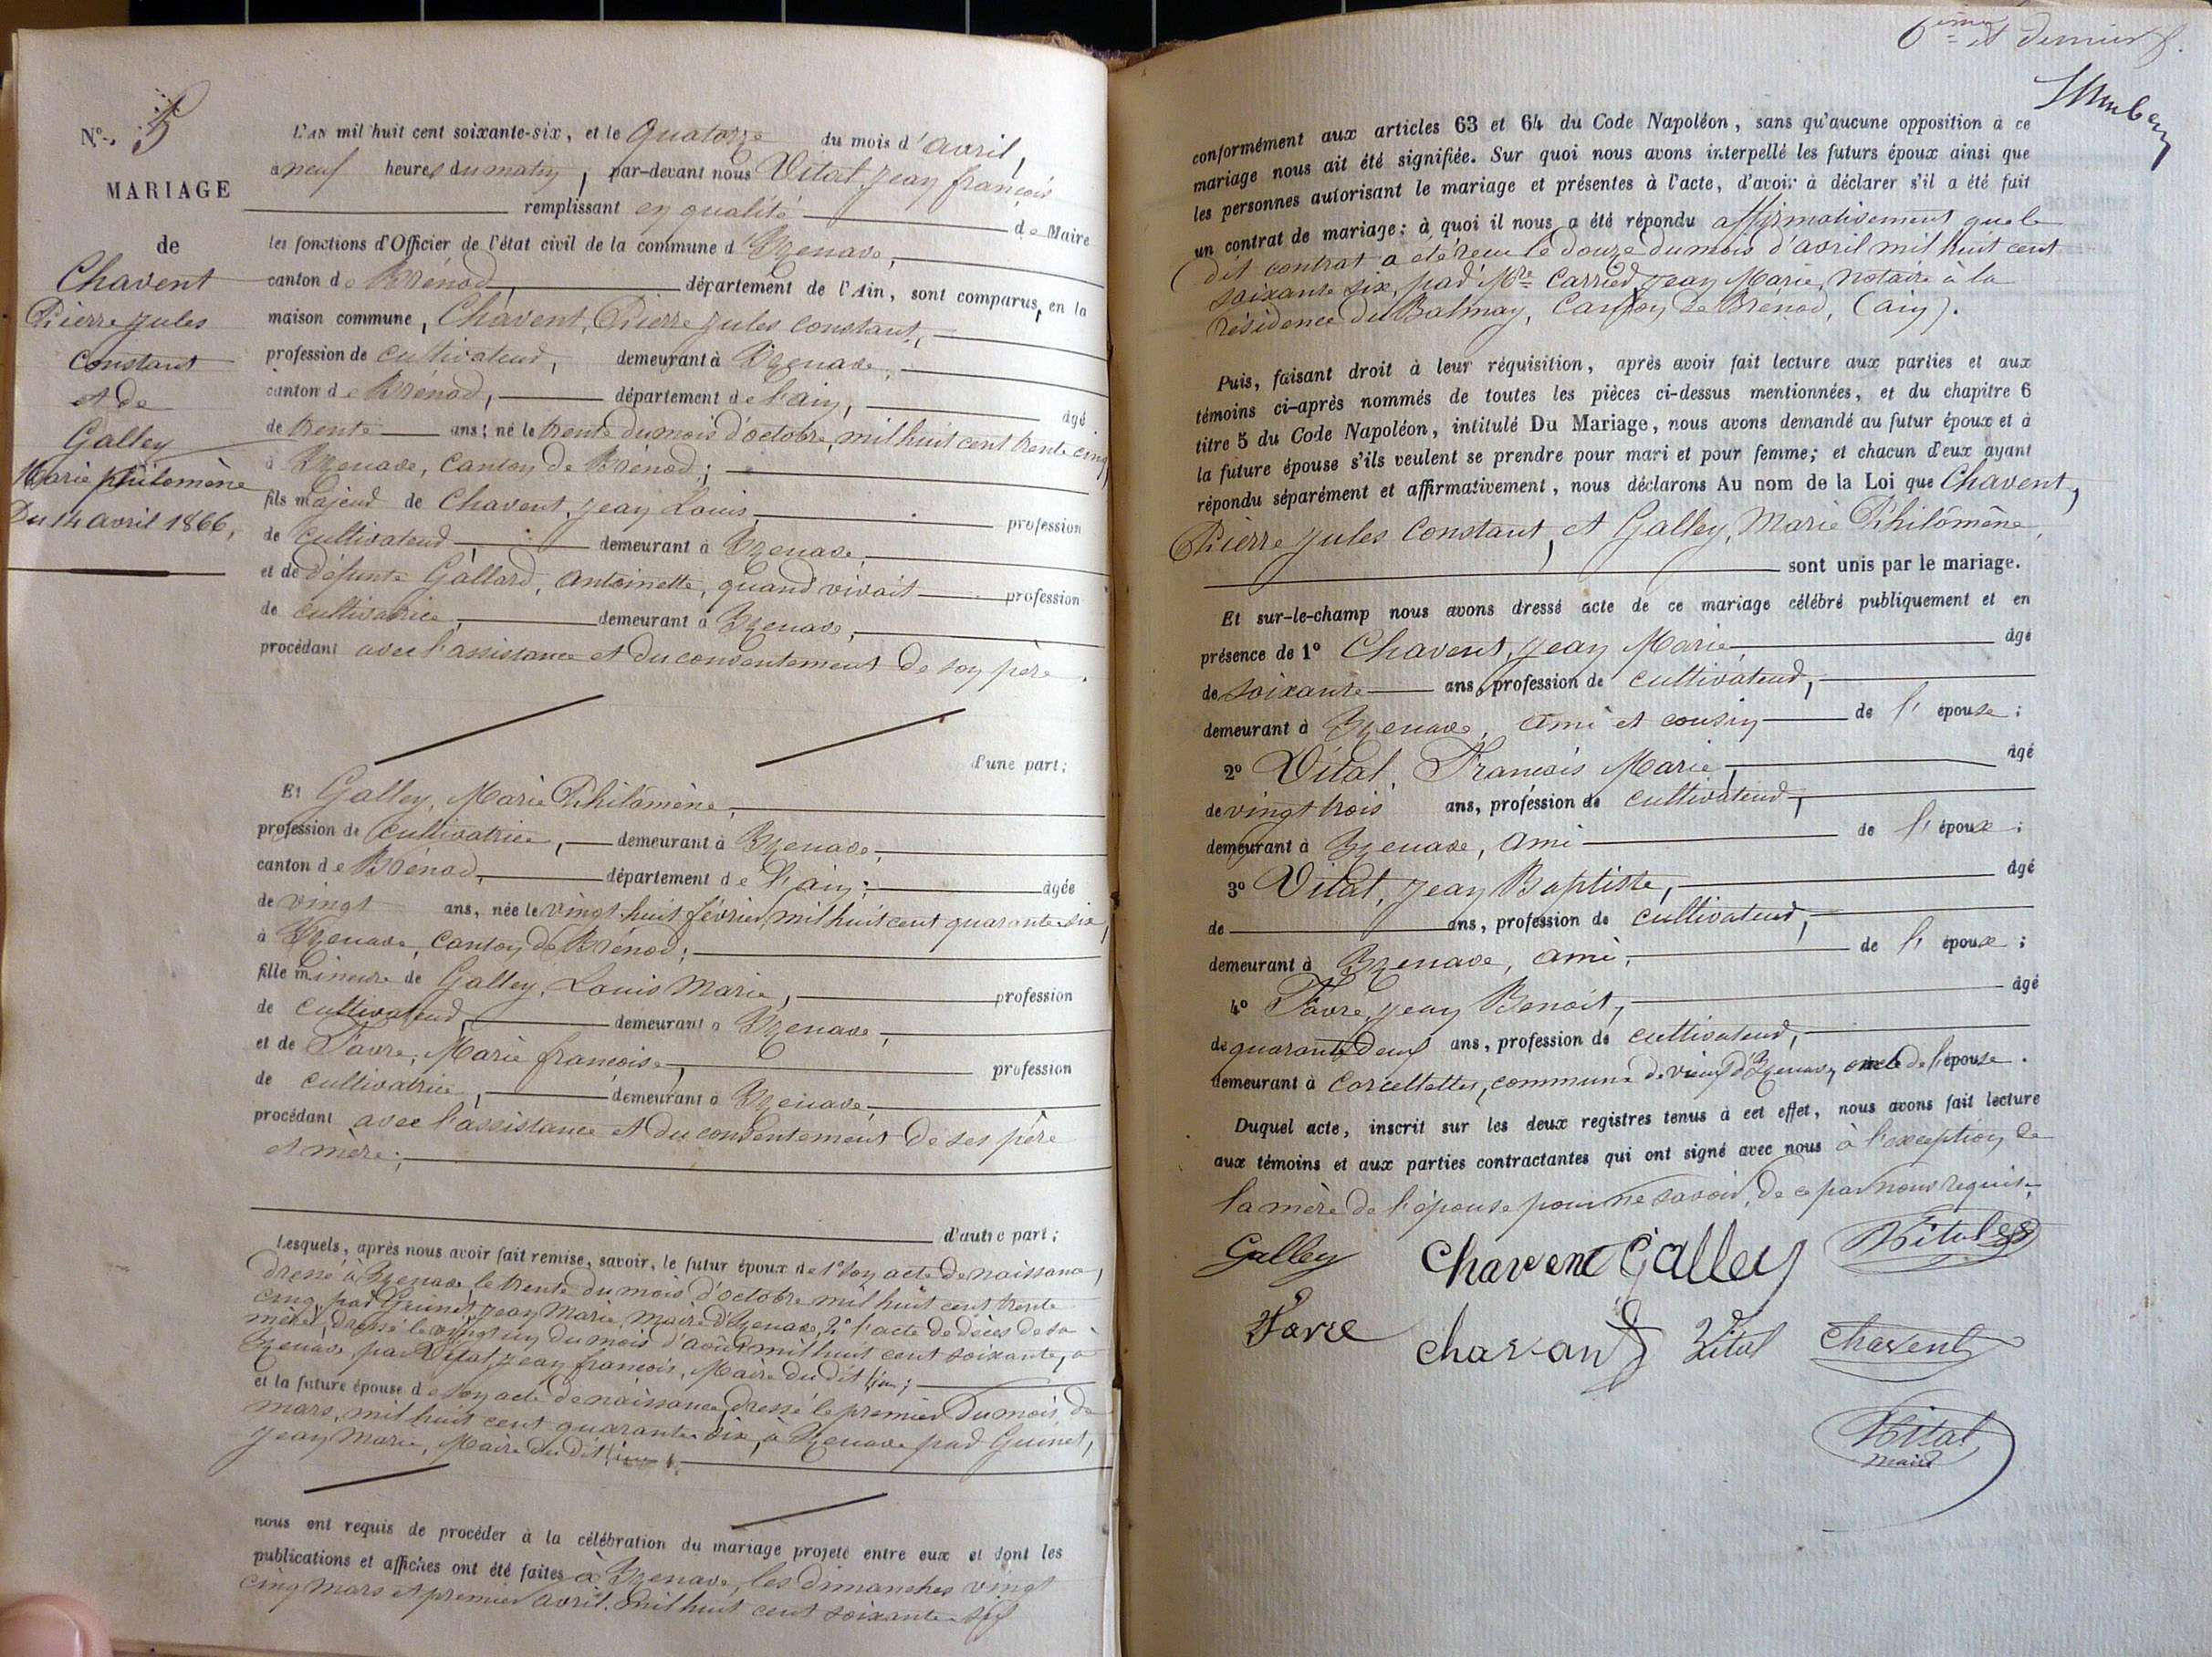 N.º 5
MARIAGE
de
Chavent
Pierre Jules
Constant
et de
Galley
Marie Philomène
Du 14 avril 1866,
L'AN mil huit cent soixante-six, et le quatorze du mois d'avril,
à neuf heures du matin, par-devant nous Vital Jean françois
remplissant en qualité de Maire
les fonctions d'Officier de l'état civil de la commune d'Izenave,
canton de Brénod, département de l'Ain, sont comparus, en la
maison commune, Chavent, Pierre Jules Constant,
profession de cultivateur, demeurant à Izenave,
canton de Brénod, département de l'ain, âgé
de trente ans; né le trente du mois d'octobre, mil huit cent trente cinq,
à Izenave, canton de Brénod;
fils majeur de Chavent, Jean Louis, profession
de cultivateur, demeurant à Izenave,
et de défunte Gallard, Antoinette, quand vivait profession
de cultivatrice, demeurant à Izenave,
procédant avec l'assistance et du consentement de son père.
d'une part;
Et Galley, Marie Philomène,
profession de cultivatrice, demeurant à Izenave,
canton de Brénod, département de l'ain; âgée
de vingt ans, née le vingt huit février, mil huit cent quarante six,
à Izenave, canton de Brénod;
fille mineure de Galley, Louis Marie, profession
de cultivateur, demeurant à Izenave,
et de Favre, Marie françoise, profession
de cultivatrice, demeurant à Izenave,
procédant avec l'assistance et du consentement de ses père
et mère;
d'autre part;
Lesquels, après nous avoir fait remise, savoir, le futur époux de 1º son acte de naissance,
dressé à Izenave, le trente du mois d'octobre mil huit cent trente
cinq, par Guinet, Jean Marie, maire d'Izenave, 2º l'acte de décès de sa
mère, dressé le vingt un du mois d'août mil huit cent soixante, à
Izenave, par Vital, Jean françois, Maire du dit lieu;
et la future épouse de son acte de naissance, dressé le premier du mois de
mars, mil huit cent quarante six, à Izenave par Guinet,
Jean Marie, Maire du dit lieu.
nous ont requis de procéder à la célébration du mariage projeté entre eux et dont les
publications et affiches ont été faites à Izenave, les dimanches vingt
cinq mars et premier avril, mil huit cent soixante six
6ème et dernier f.
conformément aux articles 63 et 64 du Code Napoléon, sans qu'aucune opposition à ce
mariage nous ait été signifiée. Sur quoi nous avons interpellé les futurs époux ainsi que
les personnes autorisant le mariage et présentes à l'acte, d'avoir à déclarer s'il a été fait
un contrat de mariage; à quoi il nous a été répondu affirmativement que le
dit contrat a été reçu le douze du mois d'avril mil huit cent
soixante six, par Mre Carrier, Jean Marie, notaire à la
résidence du Balmay, Canton de Brenod, (ain).
Puis, faisant droit à leur réquisition, après avoir fait lecture aux parties et aux
témoins ci-après nommés de toutes les pièces ci-dessus mentionnées, et du chapitre 6
titre 5 du Code Napoléon, intitulé Du Mariage, nous avons demandé au futur époux et à
la future épouse s'ils veulent se prendre pour mari et pour femme; et chacun d'eux ayant
répondu séparément et affirmativement, nous déclarons Au nom de la Loi que Chavent,
Pierre Jules Constant, et Galley, Marie Philomène,
sont unis par le mariage.
Et sur-le-champ nous avons dressé acte de ce mariage célébré publiquement et en
présence de 1º Chavent, Jean Marie, âgé
de soixante ans, profession de cultivateur,
demeurant à Izenave, ami et cousin de l'épouse;
2º Vital, François Marie, âgé
de vingt trois ans, profession de cultivateur,
demeurant à Izenave, ami de l'époux;
3º Vital, Jean Baptiste, âgé
de ans, profession de cultivateur,
demeurant à Izenave, ami, de l'époux;
4º Favre, Jean Benoit, âgé
de quarante deux ans, profession de cultivateur,
demeurant à Corcelettes, commune de vieux d'Izenave, oncle de l'épouse.
Duquel acte, inscrit sur les deux registres tenus à cet effet, nous avons fait lecture
aux témoins et aux parties contractantes qui ont signé avec nous à l'exception de
la mère de l'épouse pour ne savoir, de ce par nous requise
Galley Chavent Galley Vital
Favre Chavant Vital Chavent
Vital
maire